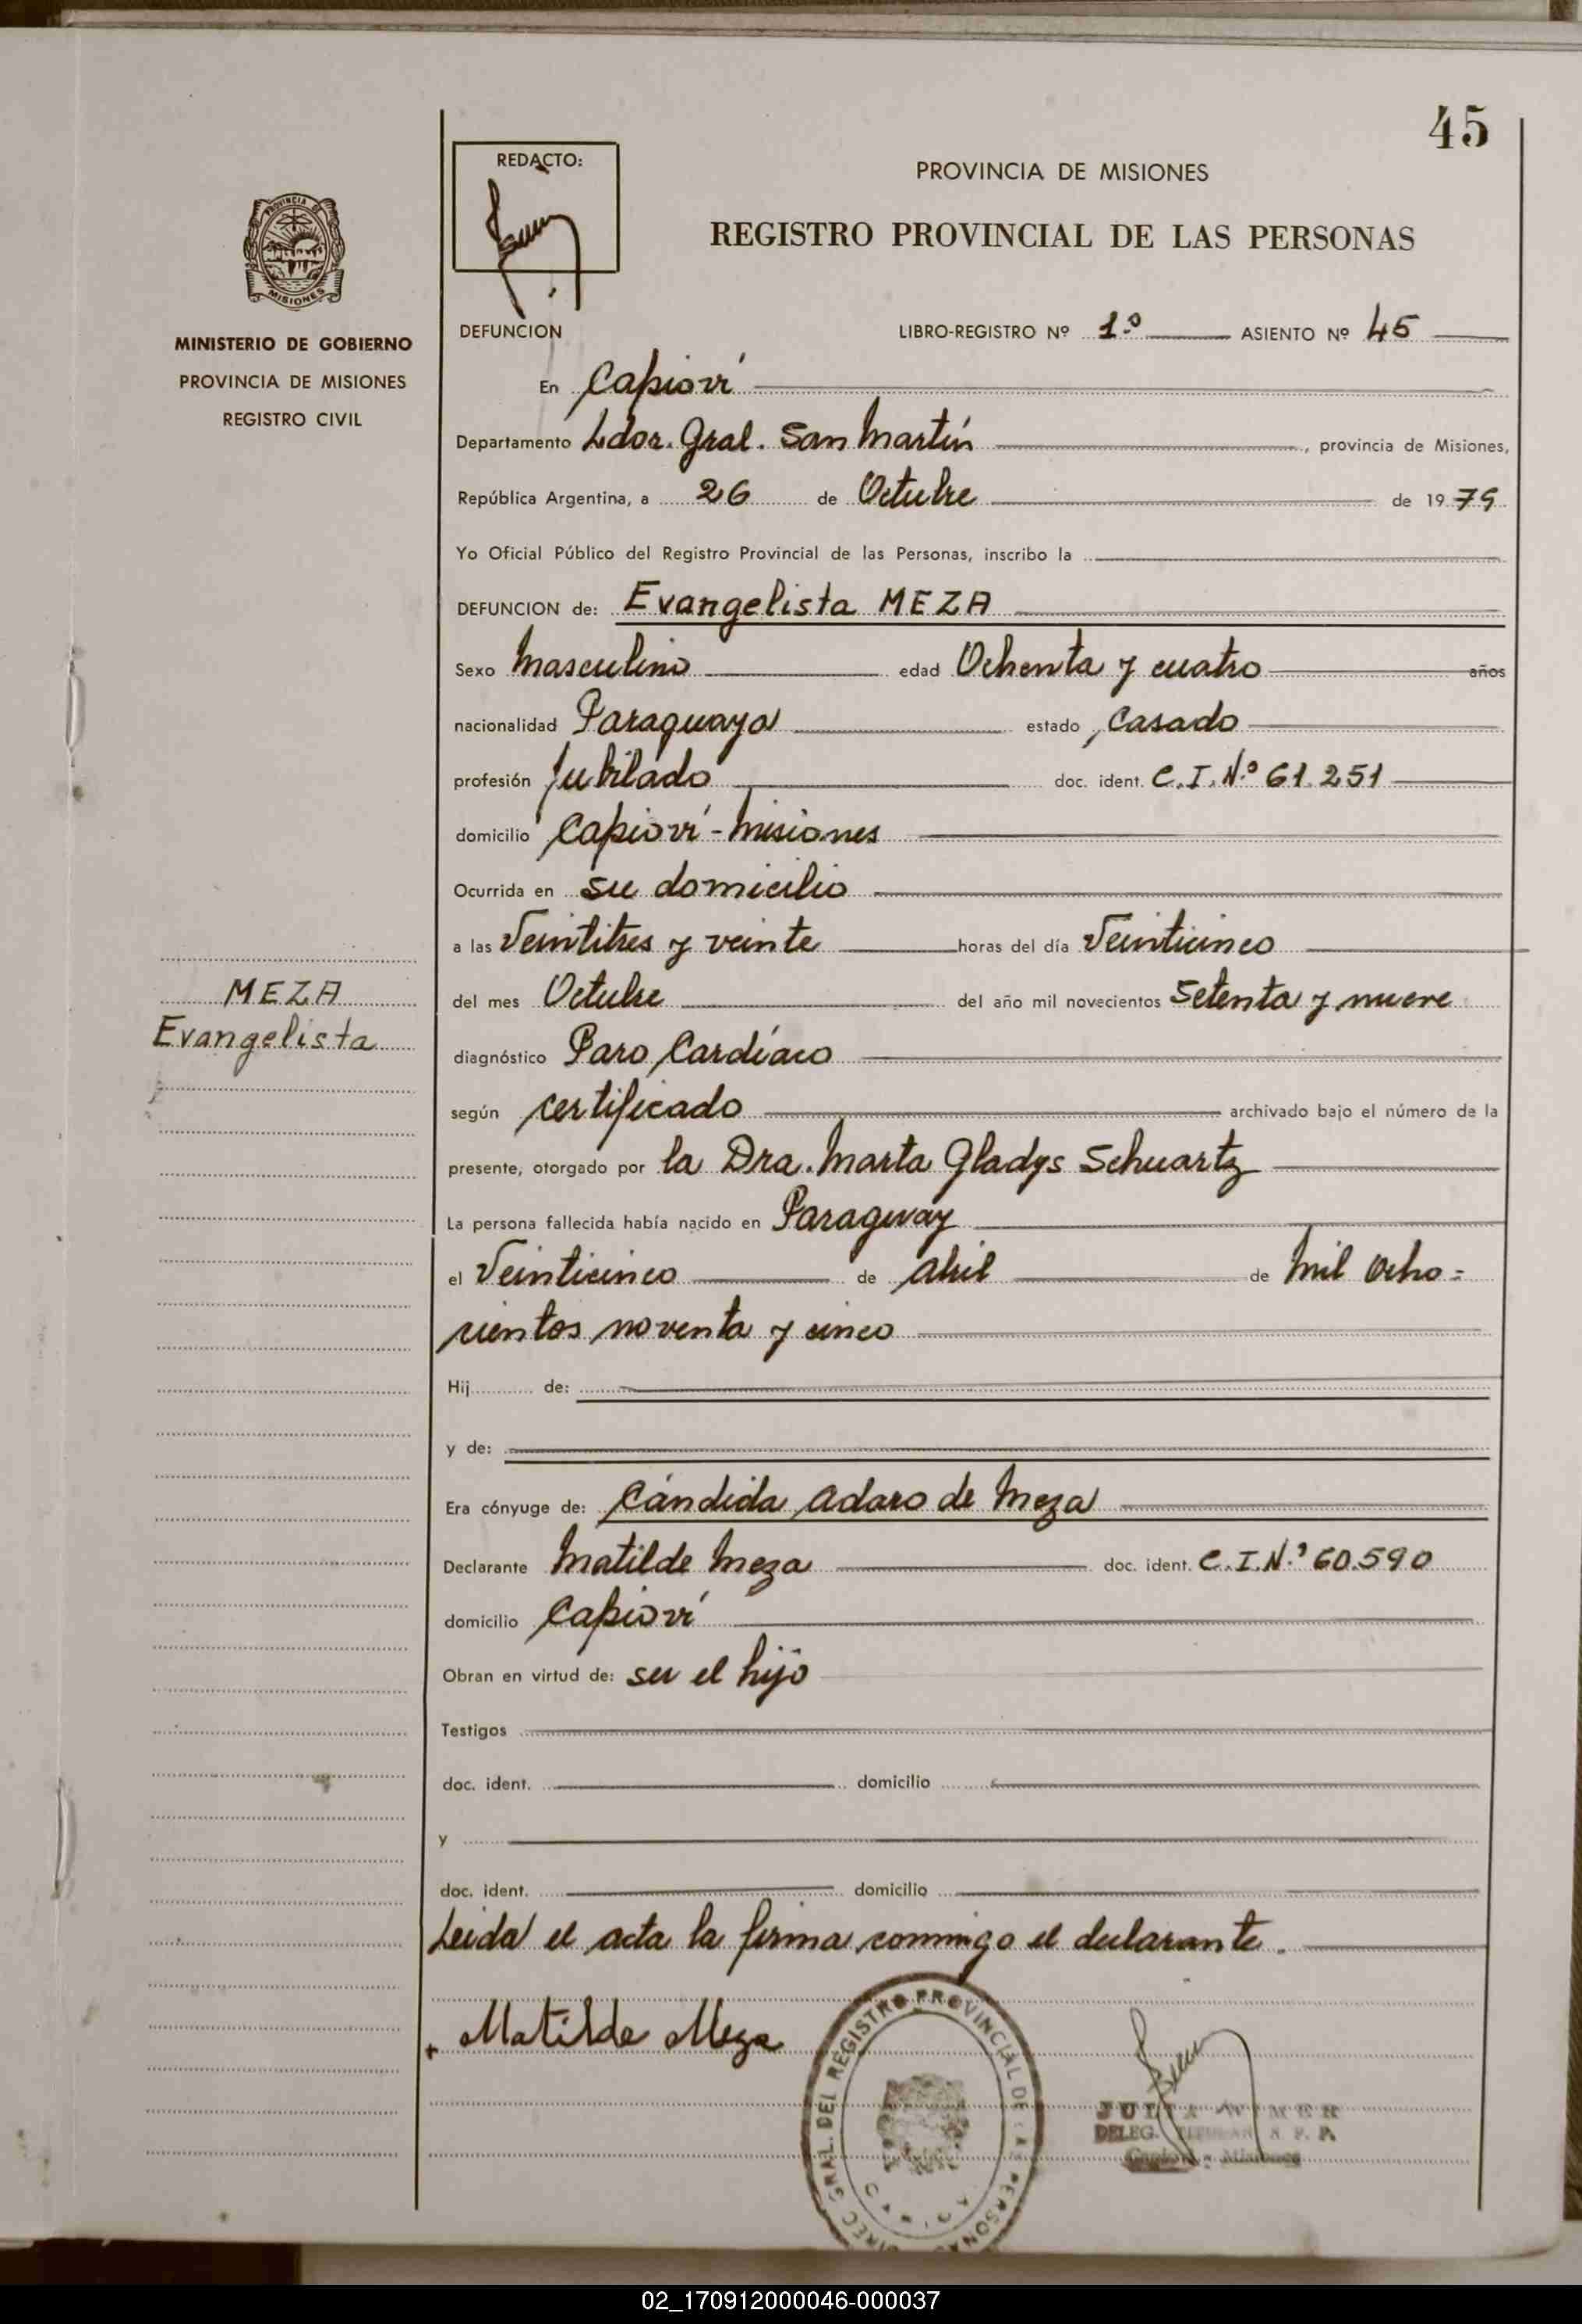 45
REDACTO:
PROVINCIA DE MISIONES
REGISTRO PROVINCIAL DE LAS PERSONAS
PROVINCIA DE
MISIONES
MINISTERIO DE GOBIERNO
PROVINCIA DE MISIONES
REGISTRO CIVIL
DEFUNCION LIBRO-REGISTRO Nº 1º ASIENTO Nº 45
En Capioví
Departamento Ldor. Gral. San Martín, provincia de Misiones,
República Argentina, a 26 de Octubre de 1979
Yo Oficial Público del Registro Provincial de las Personas, inscribo la
DEFUNCION de: Evangelista MEZA
Sexo Masculino edad Ochenta y cuatro años
nacionalidad Paraguaya estado Casado
profesión Jubilado doc. ident. C.I.Nº 61.251
domicilio Capioví - Misiones
Ocurrida en su domicilio
a las Veintitres y veinte horas del día Veinticinco
MEZA
Evangelista
del mes Octubre del año mil novecientos Setenta y nueve
diagnóstico Paro Cardíaco
según certificado archivado bajo el número de la
presente, otorgado por la Dra. Marta Gladys Schuartz
La persona fallecida había nacido en Paraguay
el Veinticinco de abril de Mil Ocho=
cientos noventa y cinco
Hij de:
y de:
Era cónyuge de: Cándida Adaro de Meza
Declarante Matilde Meza doc. ident. C.I.Nº 60.590
domicilio Capioví
Obran en virtud de: ser el hijo
Testigos
doc. ident. domicilio
y
doc. ident. domicilio
Leida el acta la firma conmigo el declarante.
Matilde Meza
DIREC. GRAL. DEL REGISTRO PROVINCIAL DE LAS PERSONAS
DELEG. TITULAR R. P. P.
Capioví - Misiones
02_170912000046-000037